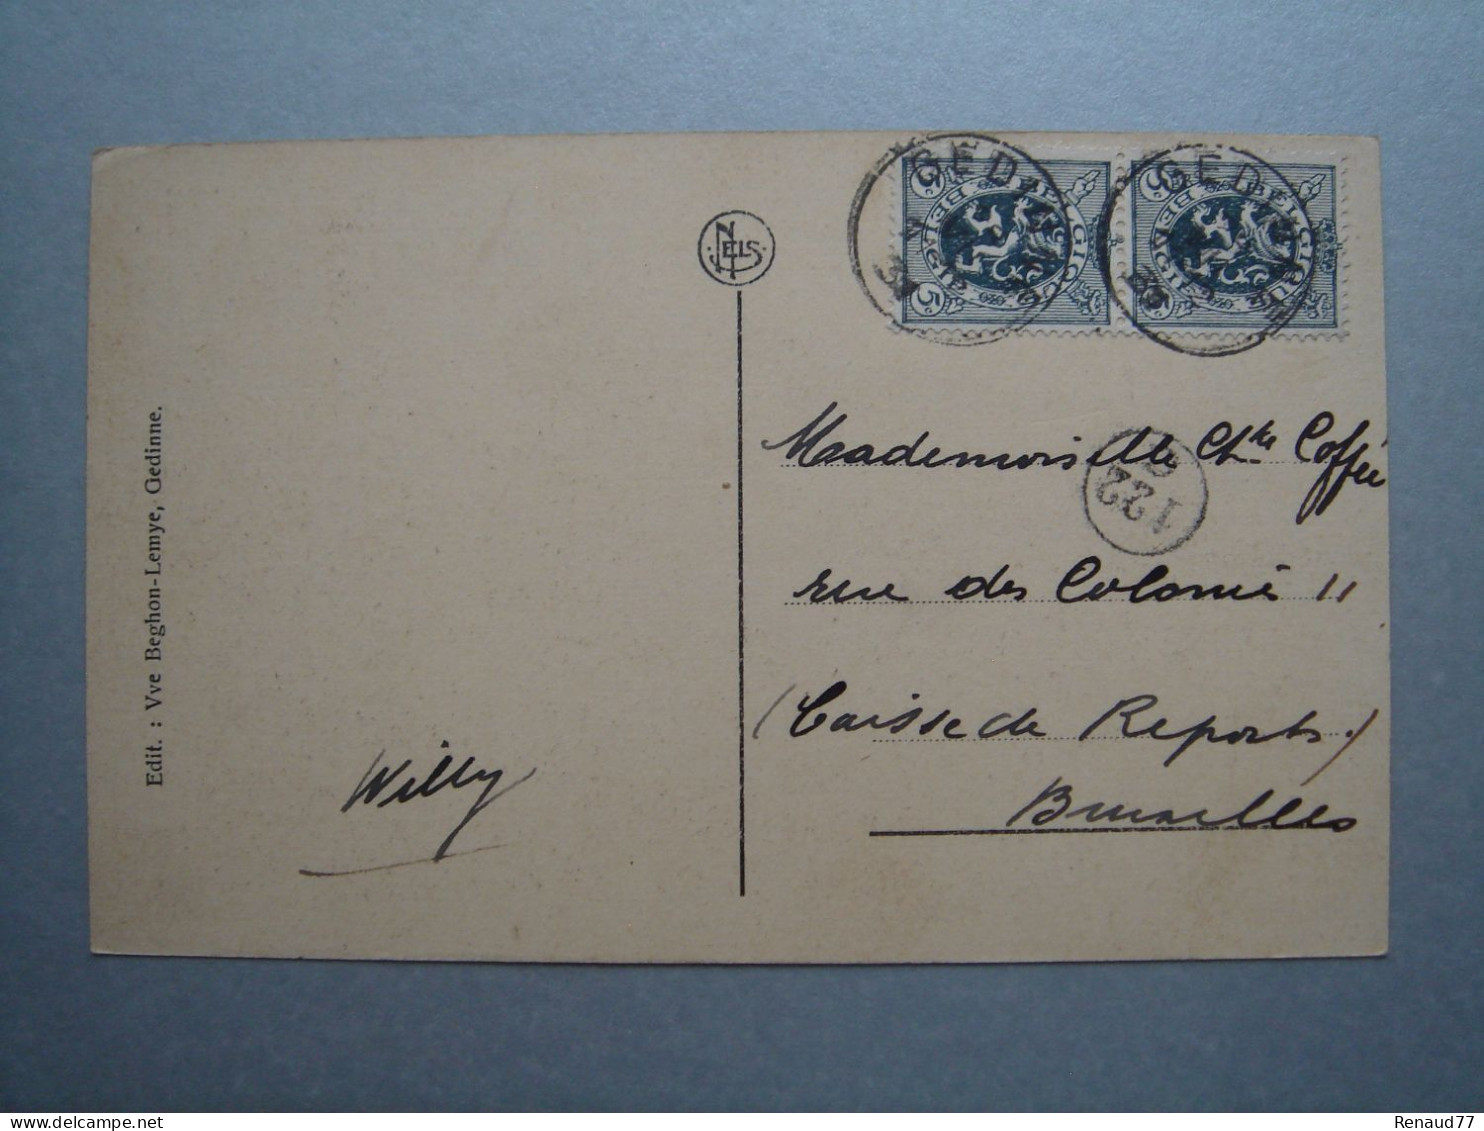 Edit. : Vve Beghon-Lemye, Gedinne.
NELS
GEDINNE
GEDINNE
BELGIQUE
BELGIË
5c
BELGIQUE
BELGIË
5c
Mademoiselle Ch^te Coffée
122
rue des Colonies 11
(Caisse de Reports.)
Bruxelles
Willy
Renaud77